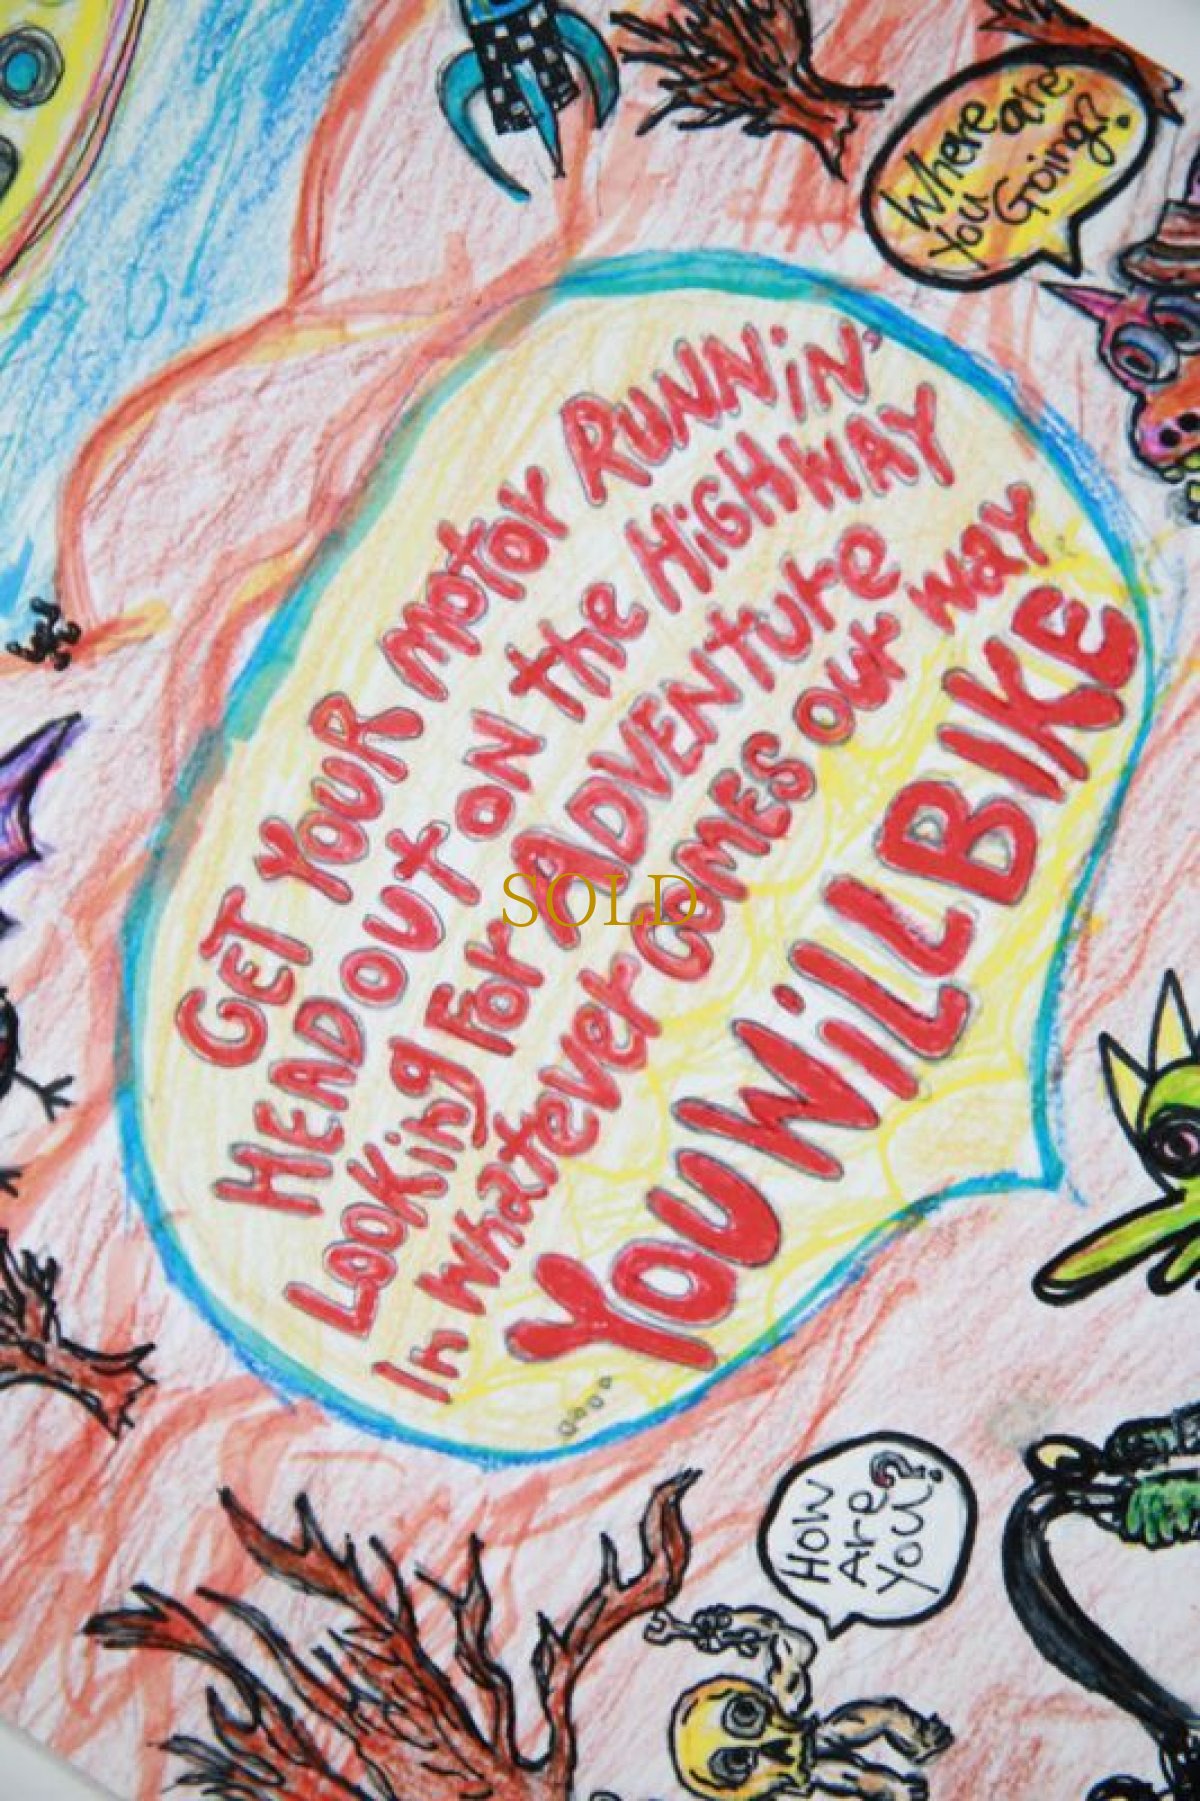 Where are
You Going?
GET YOUR MOTOR RUNNiN'
HEAD OUT ON the HiGHWAY
LOOKing FOR ADVENTURE
In Whatever COMES OUR WAY
YOU WiLL BIKE
....
HOW
Are
You?
SOLD